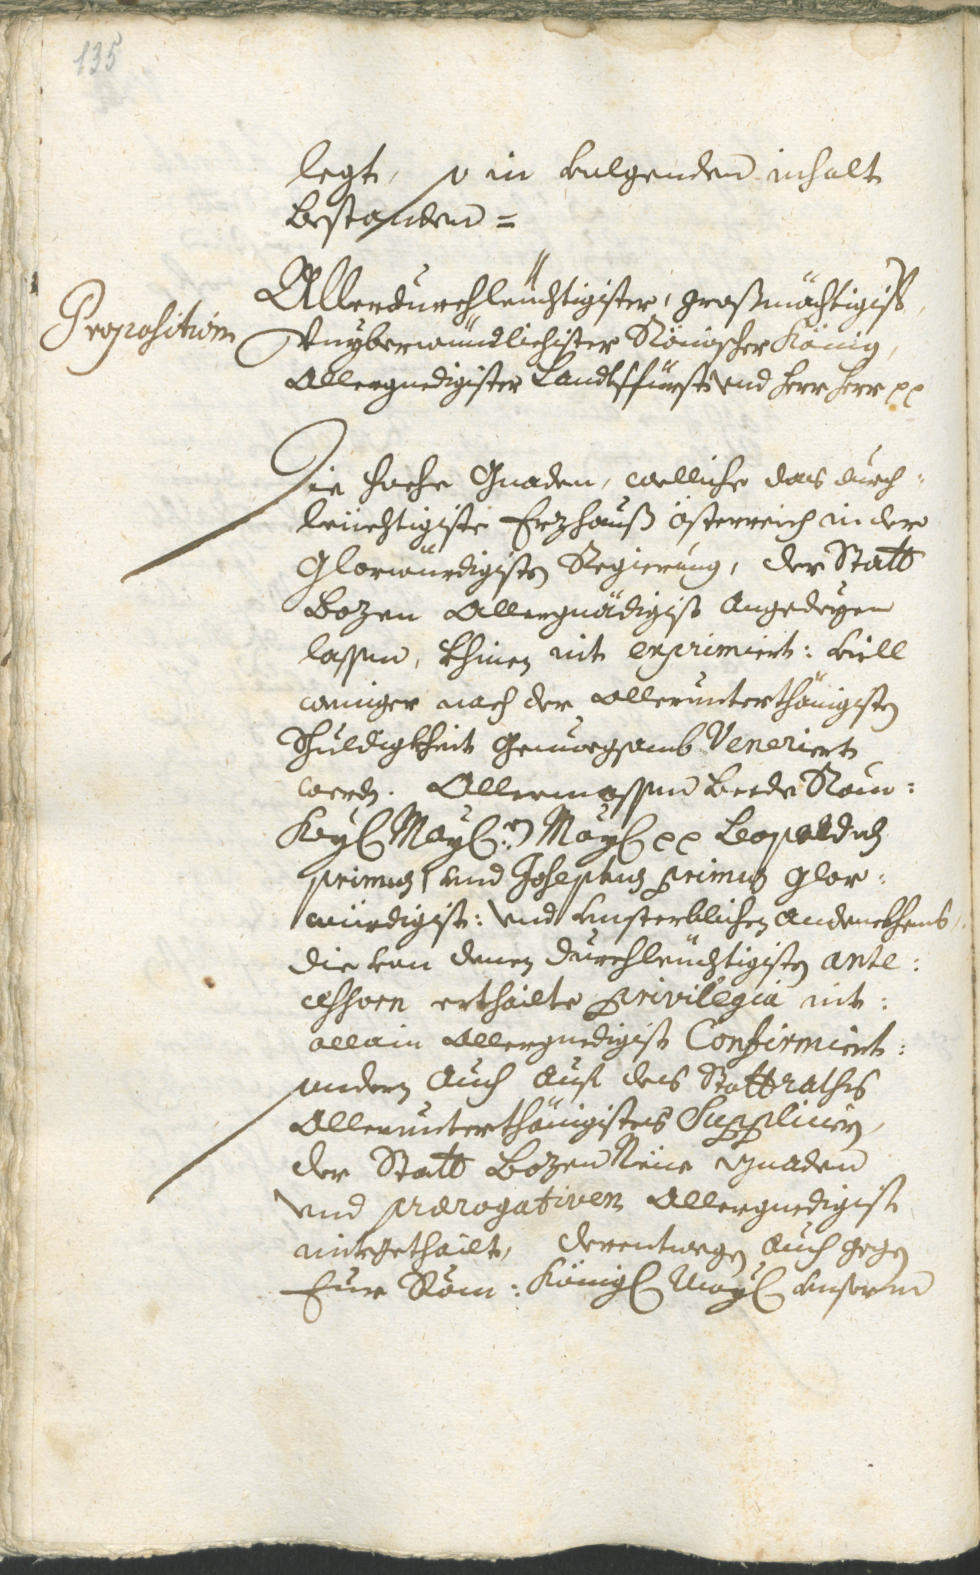 135
legt, v in volgenden inhalt
bestanden =
Proposition
Allerdurchleüchtigister, großmächtigist,
Vnyberwündtlichister Römischer König,
Allergnedigister Landtsfürst vnd Herr Herr
Die hoche Gnaden, welliche das durch-
leüchtigiste Erzhauß Össterreich in dero
Glorwürdigisten Regierung, der Statt
Bozen Allergnädigist Angedeyen
lassen, khinen nit exprimiert: viell
weniger nach der allerunterthänigisten
Schuldigkheit genuegsamb Veneriert
werden. Allermassen beede Röm:
Kayl May: May Leopoldus
primus, vnd Josephus primus glor-
würdigist: vnd vnsterblichen andenckhens,
die von denen durchleüchtigisten ante-
cessoren erthailte privilegia nit
allain allergnedigist Confirmiert:
sondern auch auf des Stattraths
Allerunterthänigistes Suppliciren,
der Statt Bozen Neue gnaden
vnd prærogativen allergnedigist
mitgethailt, derentwegen auch gegen
Eur Röm: Königl May vnserm